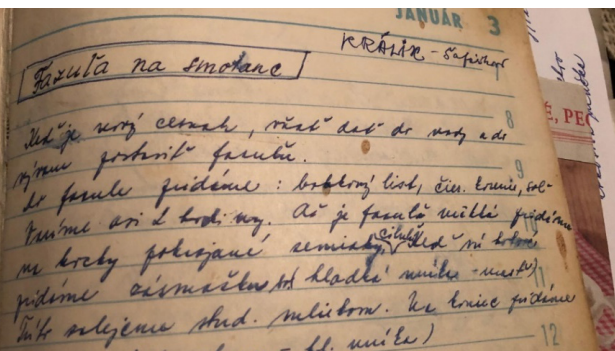 JANUÁR 3
KRÁLIK -
Fazuľa na smotane
7
8
Keď je nový cesnak, dať do vody a do
postaviť fazuľu.
9
do fazule pridáme : bobkový list, čier. korenie, soľ
Varíme asi 2 hodiny. Až je fazuľa mäkká pridáme
10
cibuľu
na kocky pokrájané zemiaky, keď sú hotové
11
pridáme zásmažku hladká múka - masť)
Túto zalejeme stud. mliekom. Na koniec pridáme
12
múka)
É, PEČ